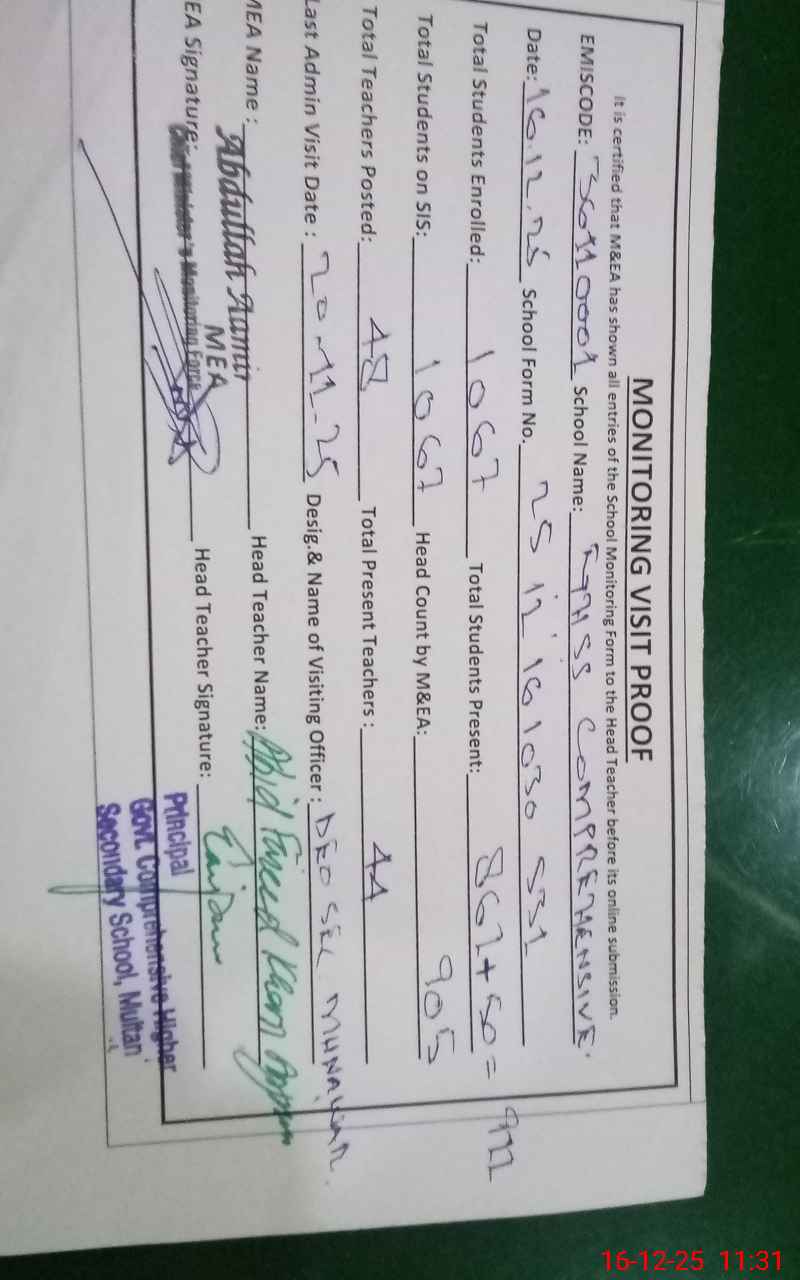 MONITORING VISIT PROOF
It is certified that M&EA has shown all entries of the School Monitoring Form to the Head Teacher before its online submission.
EMISCODE: 36110001 School Name: GHSS COMPREHENSIVE.
Date: 16.12.25 School Form No. 25 12 161030 531
Total Students Enrolled: 1067 Total Students Present: 862+50= 912
Total Students on SIS: 1067 Head Count by M&EA: 905
Total Teachers Posted: 48 Total Present Teachers : 44
Last Admin Visit Date : 20-11-25 Desig.& Name of Visiting Officer : DEO SEC MUNAWAR.
MEA Name : Abdullah Aamir Head Teacher Name: Abid Fareed Khan
MEA
EA Signature: Head Teacher Signature:
Chief Minister's Monitoring Force
Principal
Govt. Comprehensive Higher
Secondary School, Multan
16-12-25 11:31